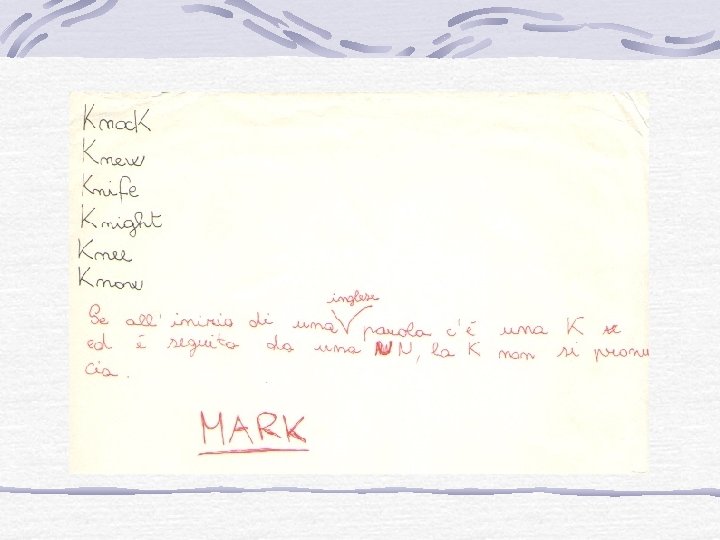 Knock
Knew
Knife
Knight
Knee
Know
inglese
Se all'inizio di una parola c'è una K se
ed è seguita da una N N, la K non si pronu
cia.
MARK